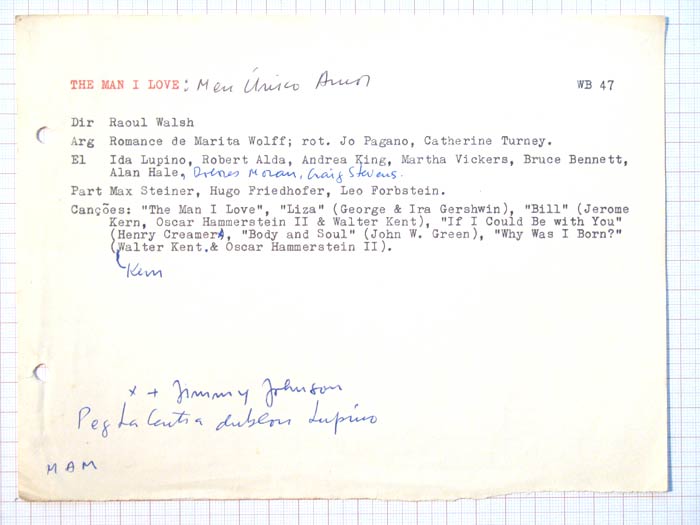 THE MAN I LOVE: Meu Único Amor WB 47
Dir Raoul Walsh
Arg Romance de Marita Wolff; rot. Jo Pagano, Catherine Turney.
El Ida Lupino, Robert Alda, Andrea King, Martha Vickers, Bruce Bennett,
Alan Hale, Dolores Moran, Craig Stevens.
Part Max Steiner, Hugo Friedhofer, Leo Forbstein.
Canções: "The Man I Love", "Liza" (George & Ira Gershwin), "Bill" (Jerome
Kern, Oscar Hammerstein II & Walter Kent), "If I Could Be with You"
(Henry Creamer), "Body and Soul" (John W. Green), "Why Was I Born?"
(Walter Kent & Oscar Hammerstein II).
Kern
x + Jimmy Johnson
Peg La Centra dublou Lupino
MAM